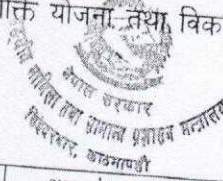 योजना तथा विक
नेपाल सरकार
संघीय मामिला तथा सामान्य प्रशासन मन्त्रालय
सिंहदरबार, काठमाण्डौ